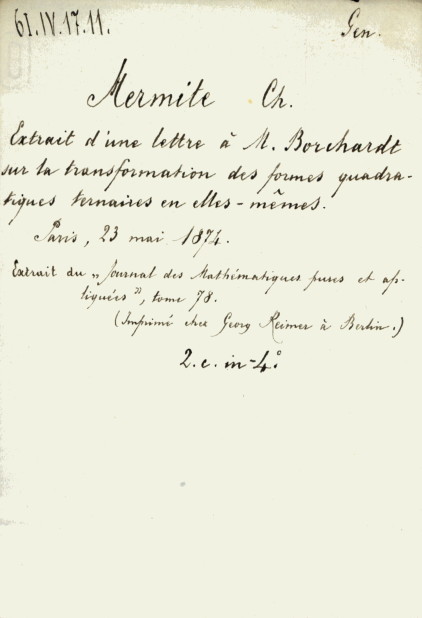 61.IV.17.11.
Gen.
Hermite Ch.
Extrait d'une lettre à M. Borchardt
sur la transformation des formes quadra-
tiques ternaires en elles-mêmes.
Paris, 23 mai 1874.
Extrait du „Journal des Mathématiques pures et ap-
pliquées”, tome 78.
(Imprimé chez Georg Reimer à Berlin.)
2. c. in-4.°